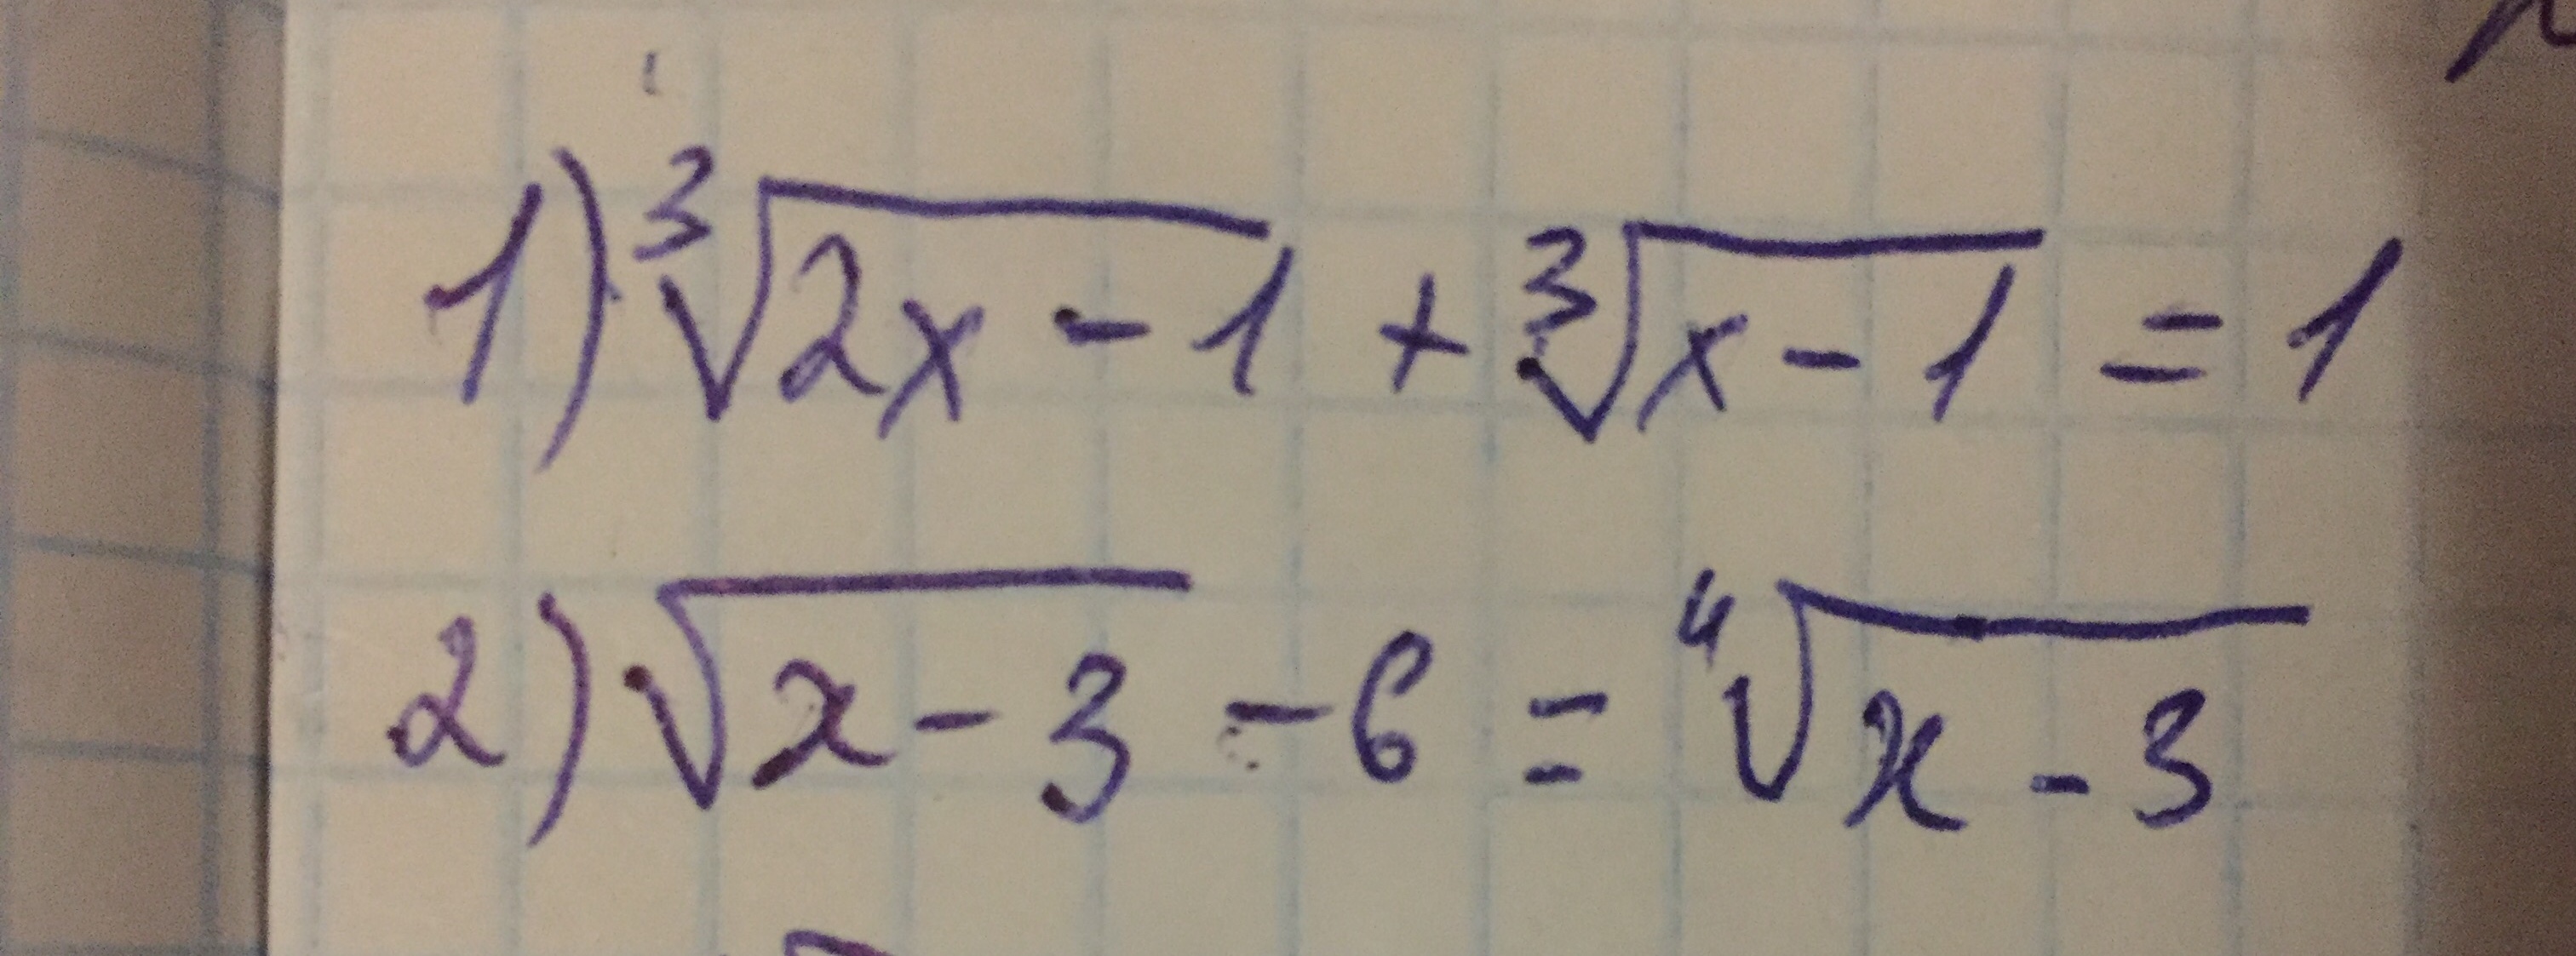 1) ∛(2x - 1) + ∛(x - 1) = 1
2) √(x - 3) - 6 = ∜(x - 3)